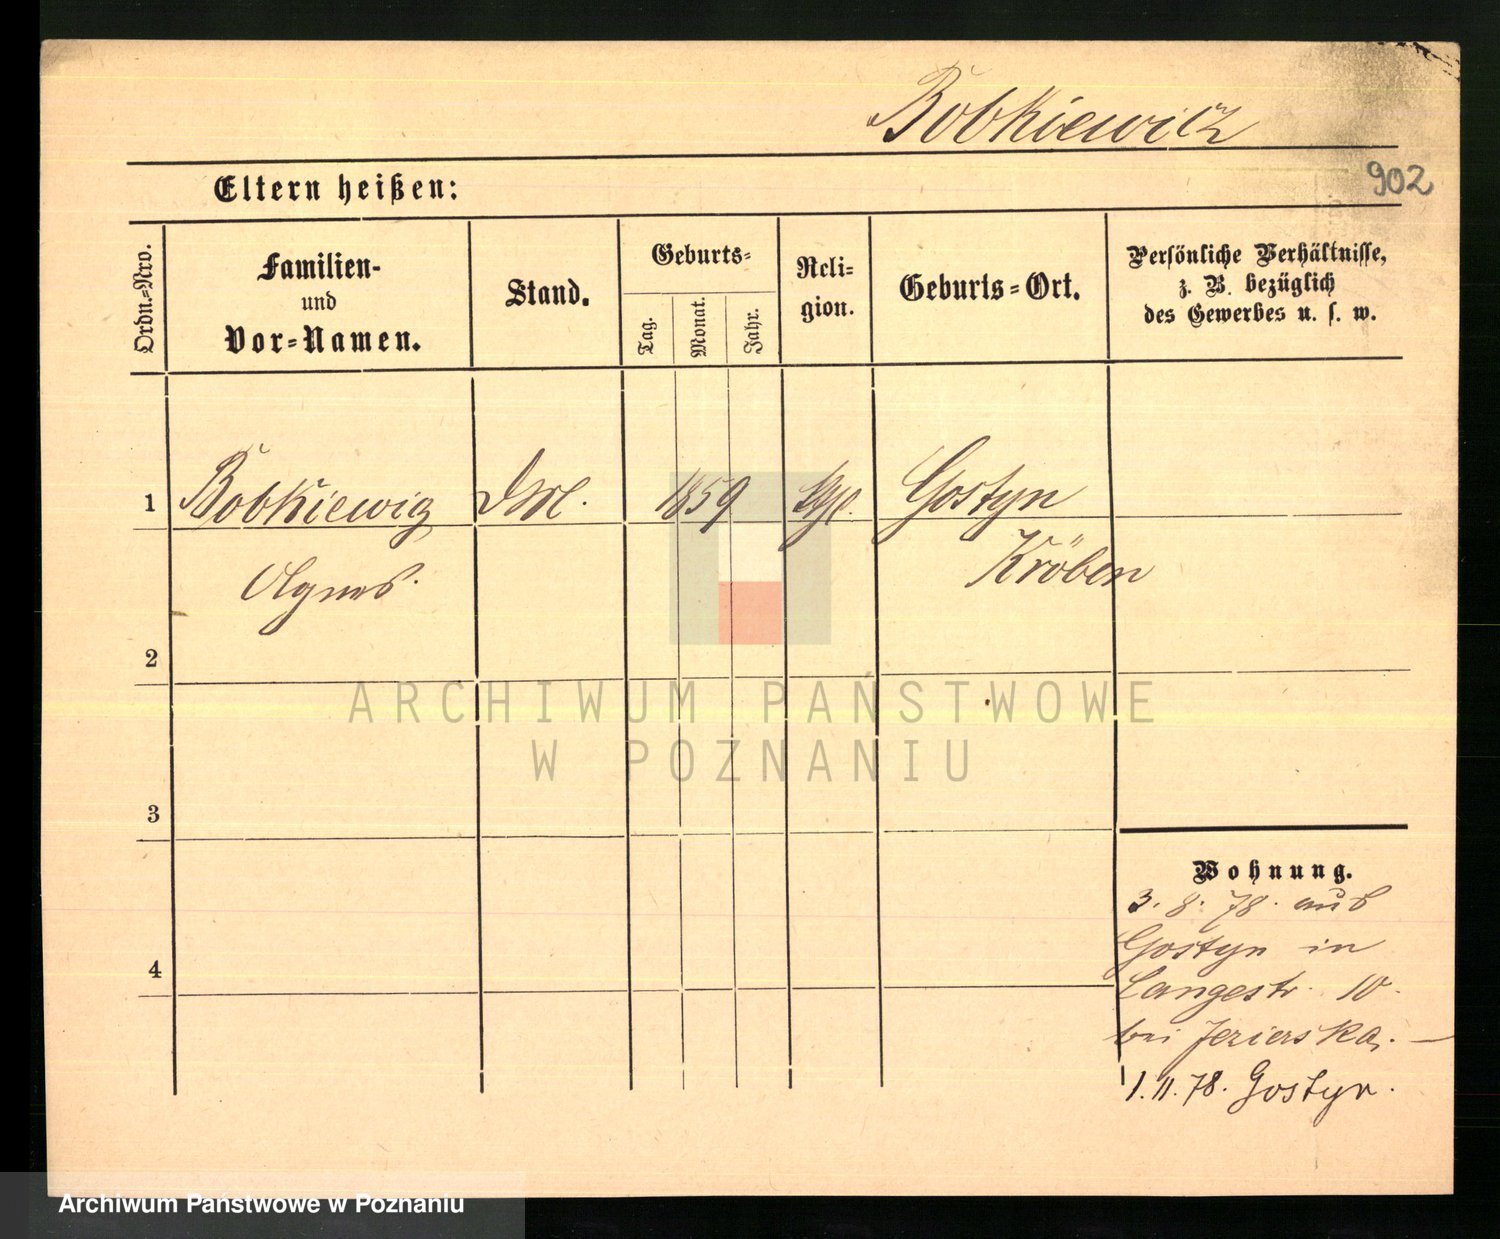 Bobkiewicz
902
Eltern heißen:
Ordn.-Nro.
Familien-
und
Vor-Namen.
Stand.
Geburts-
Tag.
Monat.
Jahr.
Reli-
gion.
Geburts-Ort.
Persönliche Verhältnisse,
z. B. bezüglich
des Gewerbes u. s. w.
1
Bobkiewiz
1859
Gostyn
Agnes.
Kröben
2
ARCHIWUM PAŃSTWOWE
W POZNANIU
3
4
Wohnung.
3. 8. 78. aus
Gostyn in
Langestr. 10.
bei Jezierska. —
1. 11. 78. Gostyn.
Archiwum Państwowe w Poznaniu